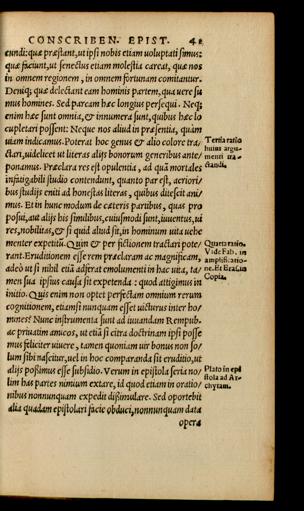 CONSCRIBEN. EPIST. 41
cundi: quæ præstant, ut ipsi nobis etiam uoluptati simus:
quæ faciunt, ut senectus etiam molestia careat, quæ nos
in omnem regionem, in omnem fortunam comitantur.
Deniq; quæ delectant eam hominis partem, qua uere su
mus homines. Sed parcam hæc longius persequi. Neq;
enim hæc sunt omnia, & innumera sunt, quibus hæc lo
cupletari possent: Neque nos aliud in præsentia, quàm
uiam indicamus. Poterat hoc genus & alio colore tra/
ctari, uidelicet ut literas alijs bonorum generibus ante/
ponamus. Præclara res est opulentia, ad quam mortales
infatigabili studio contendunt, quanto par est, acriori/
bus studijs eniti ad honestas literas, quibus ditescit ani/
mus. Et in hunc modum de cæteris partibus, quas pro
posui, aut alijs his similibus, cuiusmodi sunt, iuuentus, ui
res, nobilitas, & si quid aliud sit, in hominum uita uehe
menter expetitum. Quin & per fictionem tractari pote/
rant. Eruditionem esse rem præclaram ac magnificam,
adeò ut si nihil etiã adferat emolumenti in hac uita, ta/
men sua ipsius causa sit expetenda: quod attigimus in
initio. Quis enim non optet perfectam omnium rerum
cognitionem, etiamsi nunquam esset uicturus inter ho/
mines? Nunc instrumenta sunt ad iuuandam Rempub.
ac priuatim amicos, ut etiã si citra doctrinam ipsi posse
mus feliciter uiuere, tamen quoniam uir bonus non so/
lum sibi nascitur, uel in hoc comparanda sit eruditio, ut
alijs possimus esse subsidio. Verum in epistola seria no/
lim has partes nimium extare, id quod etiam in oratio/
nibus nonnunquam expedit dissimulare. Sed oportebit
alia quadam epistolari facie obduci, nonnunquam data
opera
Tertia ratio
huius argu-
menti tra-
ctandi.
Quarta ratio.
Vide Fab. in
amplificatio-
ne. Et Eras. in
Copia.
Plato in epi
stola ad Ar-
chytam.